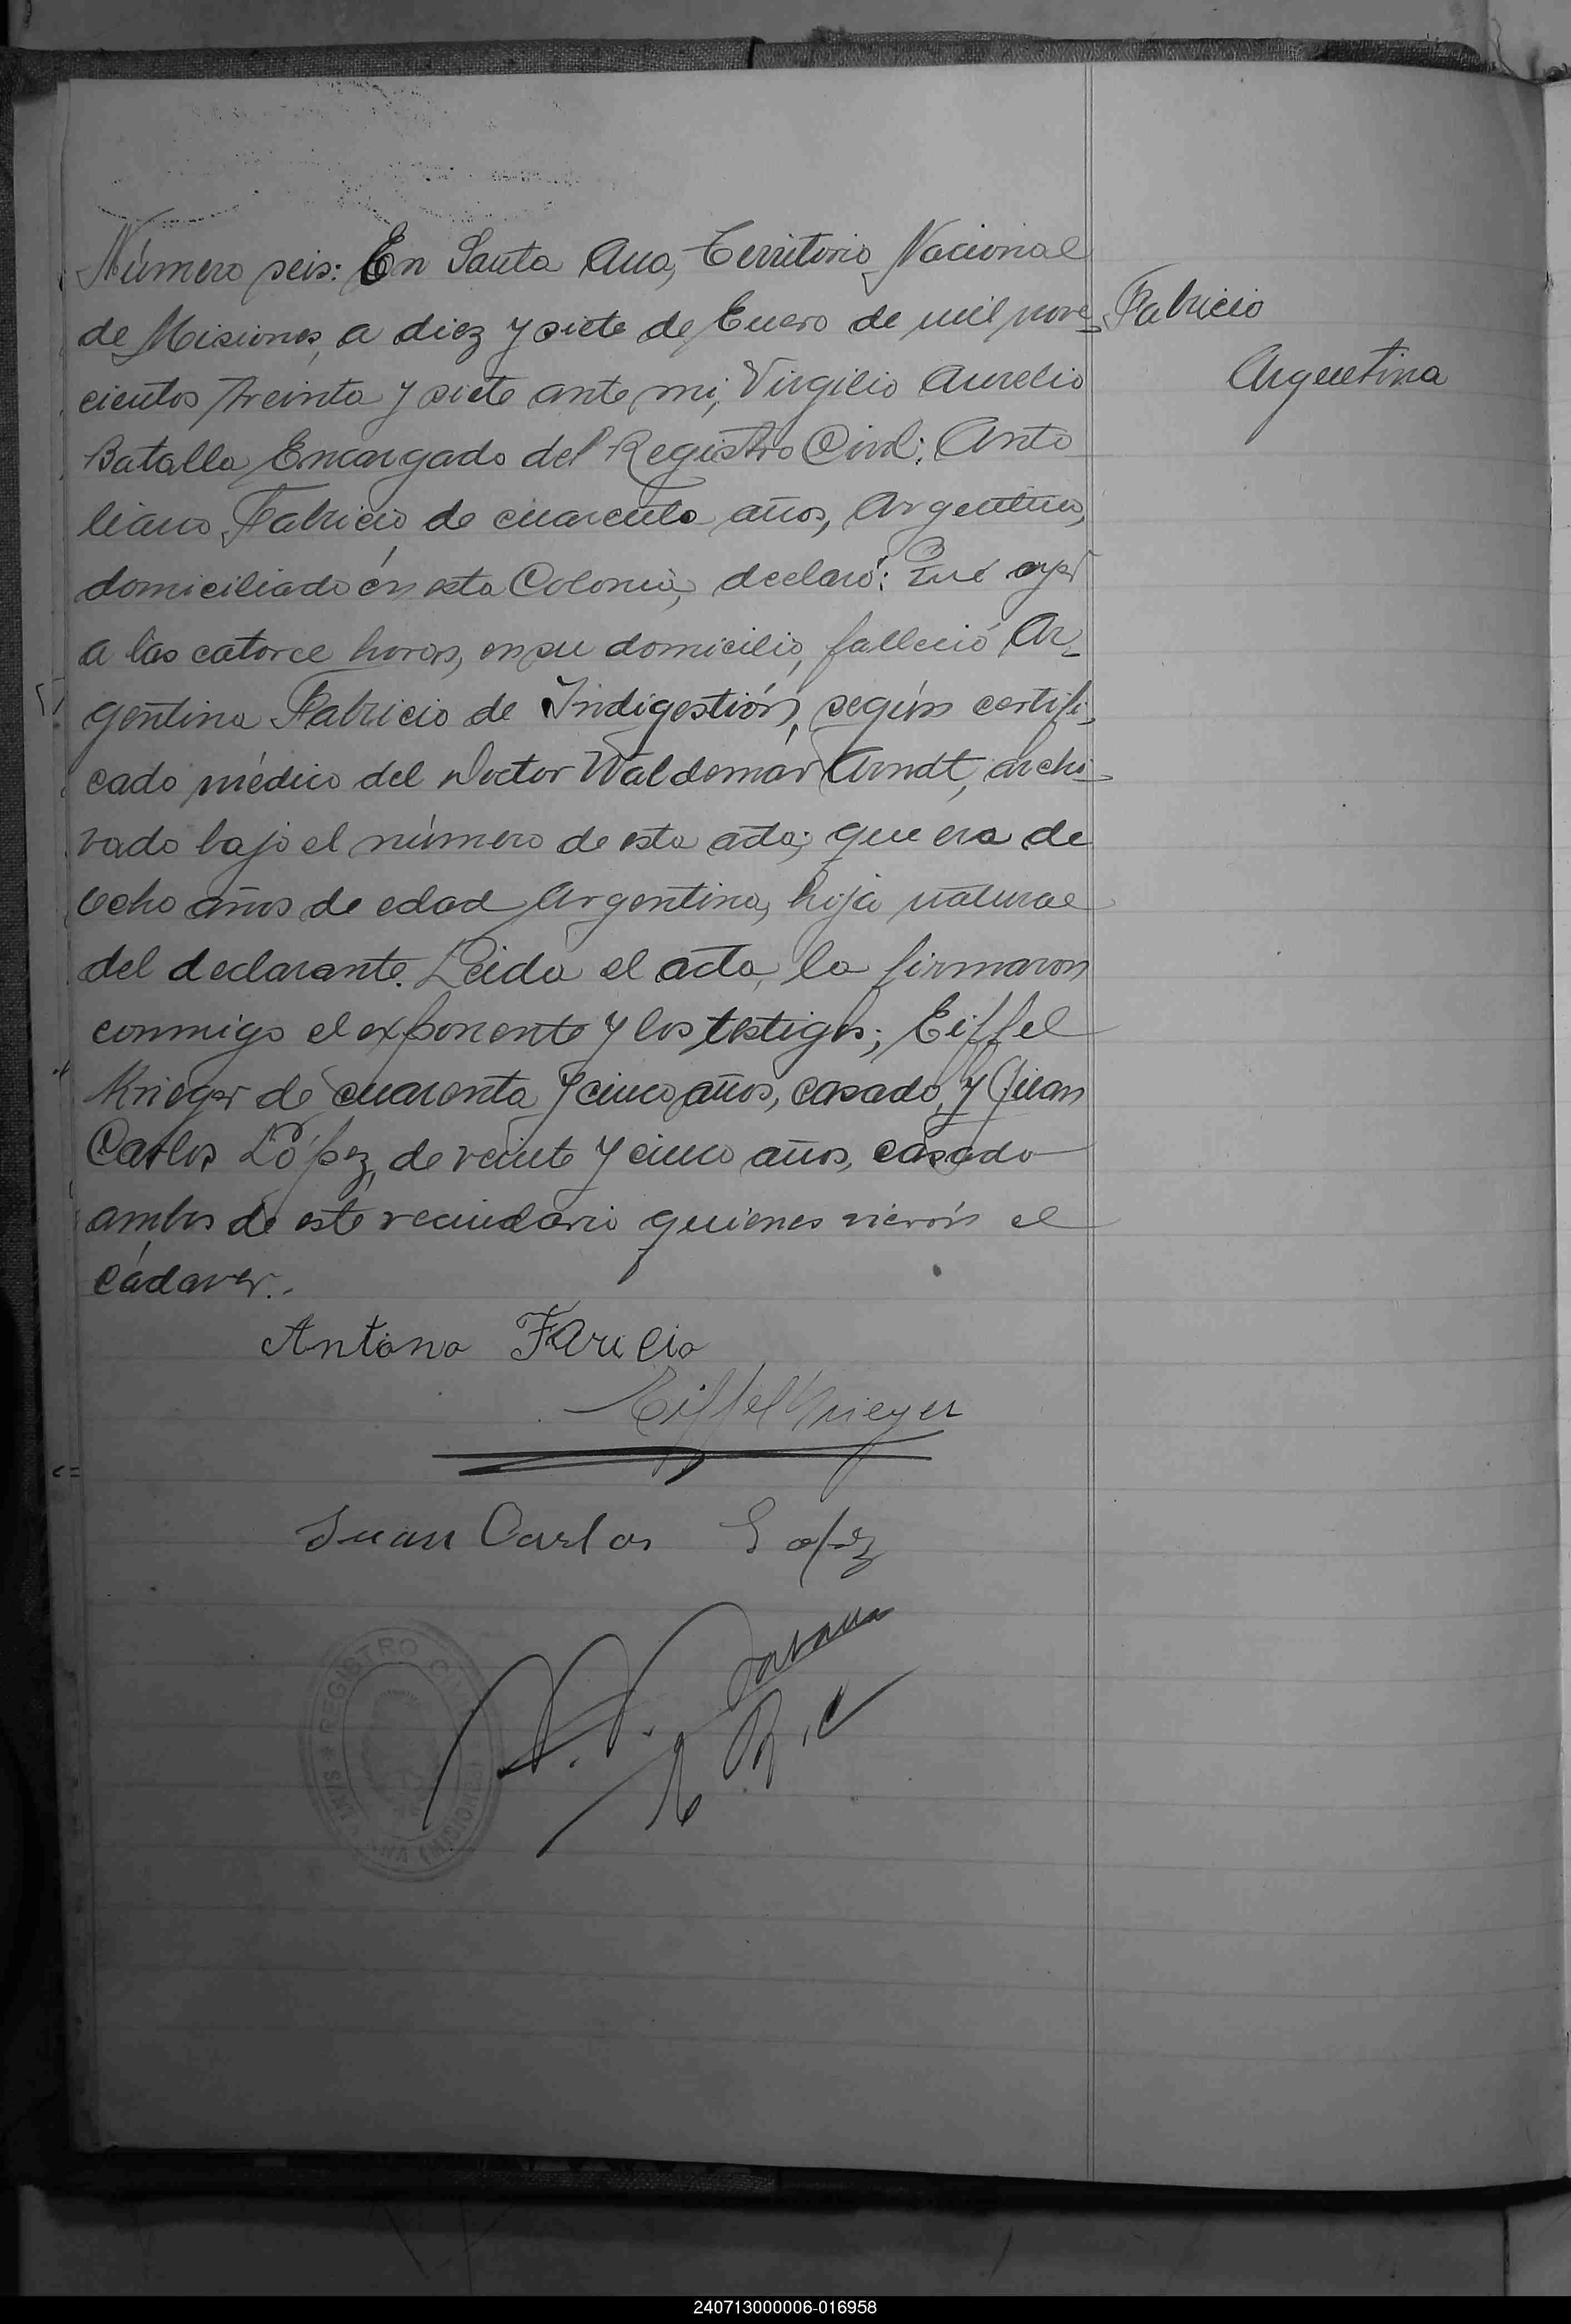 Número seis: En Santa Ana, Territorio Nacional
de Misiones, a diez y siete de Enero de mil nove-
cientos treinta y siete ante mi, Virgilio Aurelio
Batalla Encargado del Registro Civil: Anto
liano Fabricio de cuarenta años, Argentino,
domiciliado en esta Colonia, declaró: Que ayer
a las catorce horas, en su domicilio, falleció Ar-
gentina Fabricio de Indigestión, según certifi-
cado médico del Doctor Waldemar Arndt, archi-
vado bajo el número de esta acta; que era de
ocho años de edad Argentina, hija natural
del declarante. Leida el acta, la firmaron
conmigo el exponente y los testigos; Eiffel
Krieger de cuarenta y cinco años, casado, y Juan
Carlos López, de veinte y cinco años, casado
ambos de este vecindario quienes vierón el
cádaver..
Fabricio
Argentina
Antono Farilio
Eiffel Krieger
Juan Carlos Lopez
E R. C
REGISTRO
SANTA ANA (MISIONES)
240713000006-016958